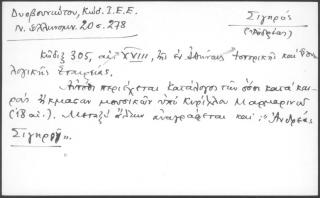 Δυοβουνιώτου, Κώδ. Ι.Ε.Ε.
Ν. Ἑλληνομν. 20 σ. 278
Σιγηρός
(Ἀνδρέας)
Κῶδιξ 305, αἰ. XVIII, τῆς ἐν Ἀθήναις Ἱστορικῆς καὶ Ἐθνο-
λογικῆς Ἑταιρίας.
περιέχεται Κατάλογος τῶν ὅσοι κατὰ και-
ροὺς ἤκμασαν μουσικῶν ὑπὸ Κυρίλλου Μαρμαρινοῦ
(18 αἰ.). Μεταξὺ ἄλλων ἀναγράφεται καὶ: "Ἀνδρέας
Σιγηρός".